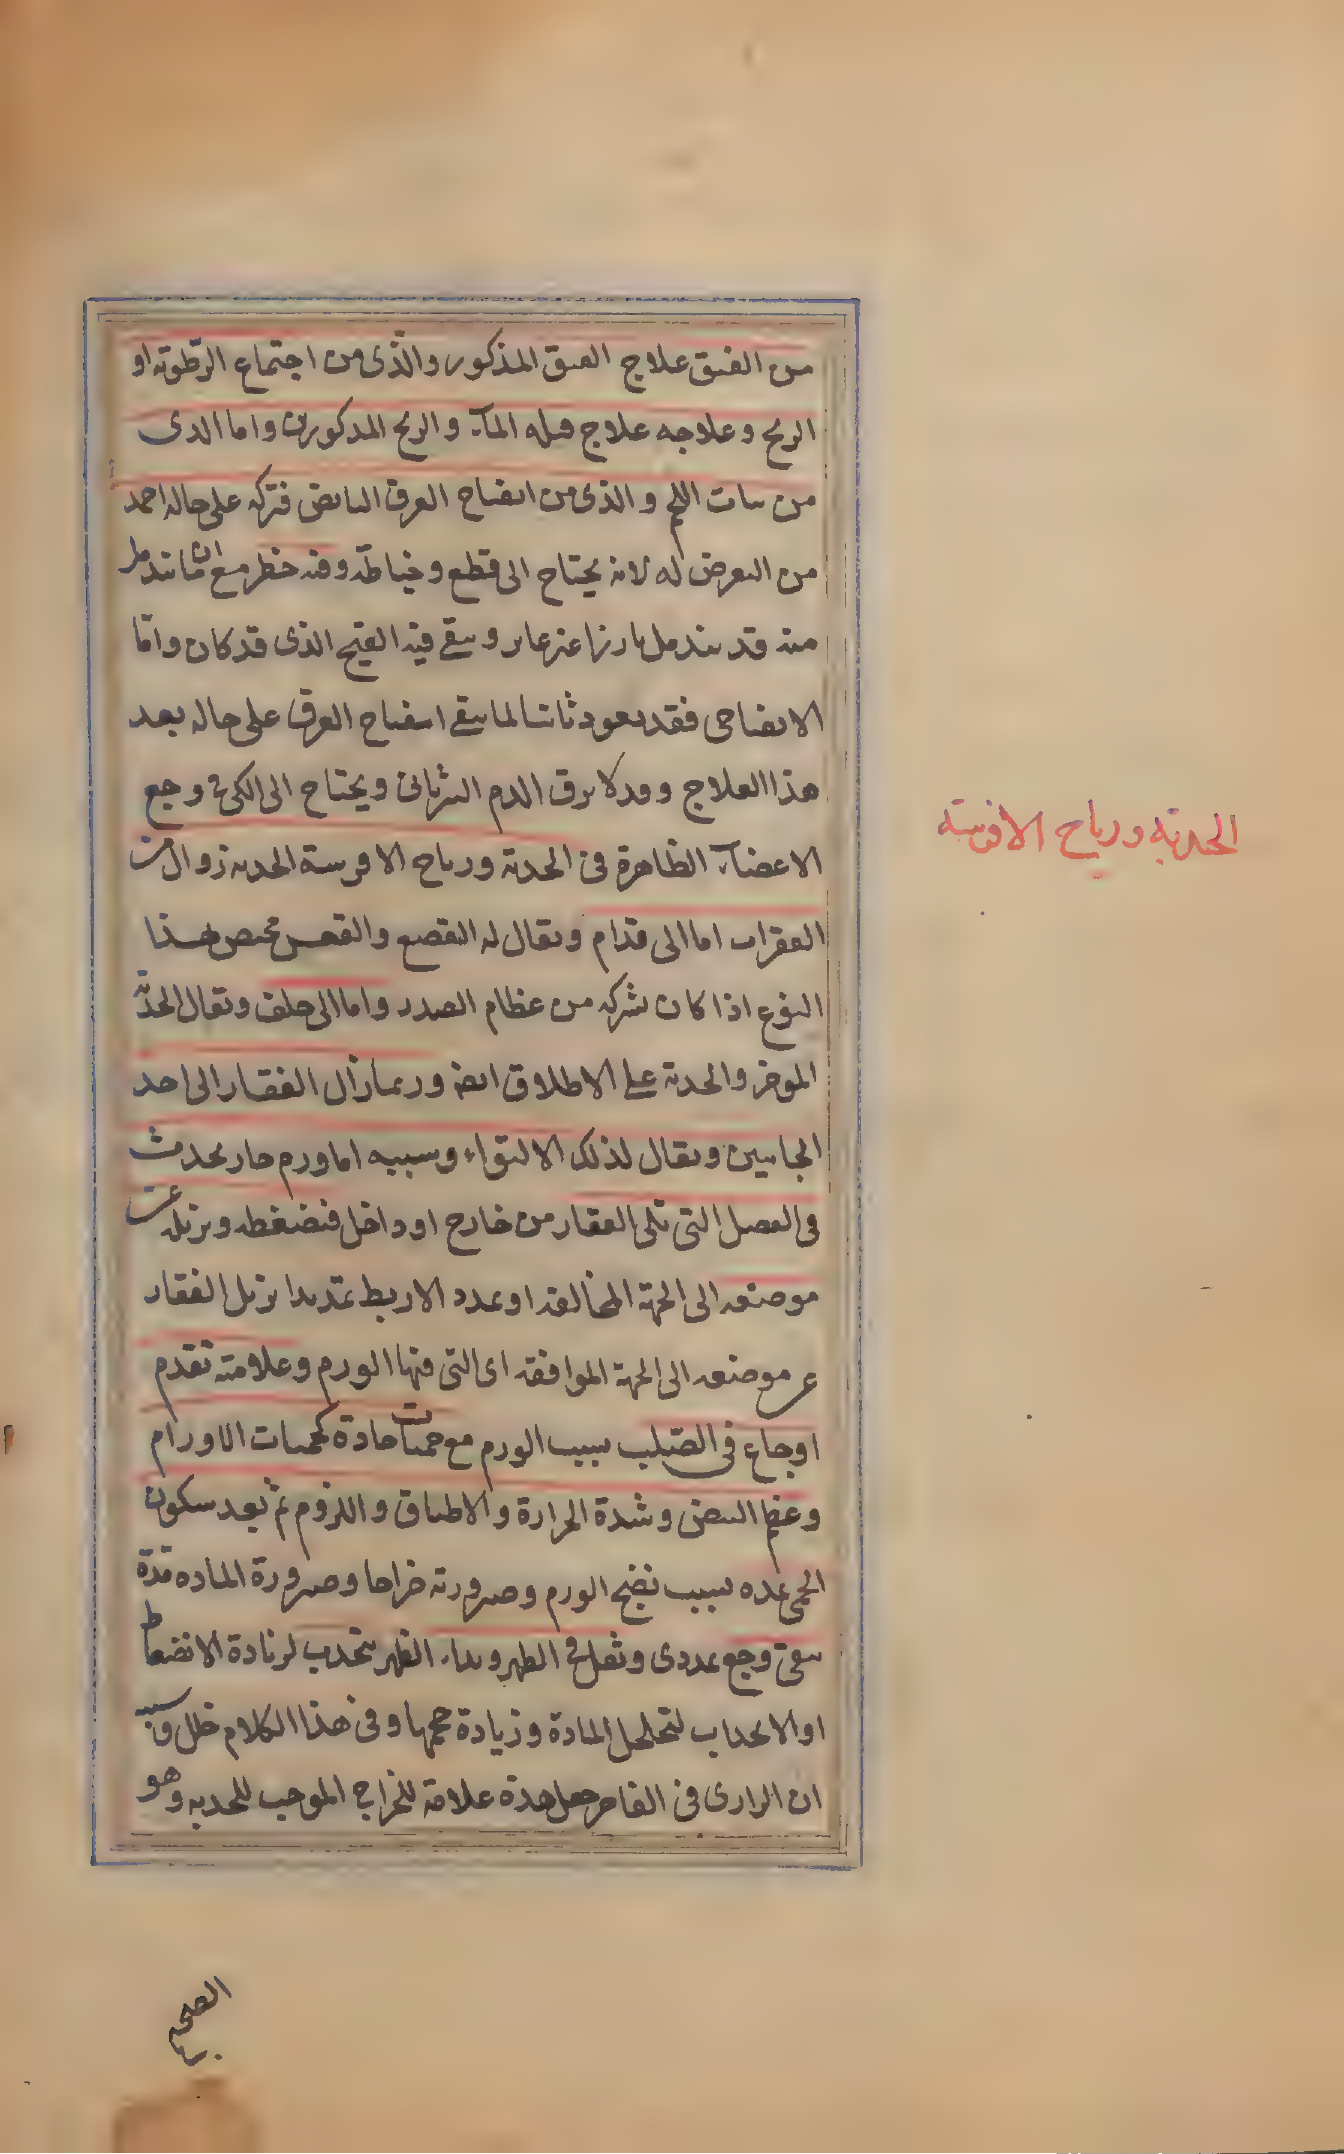 من الفتق علاج الفتق المذكور والذى من اجتماع الرطوبة او
الريح وعلاجه علاج قيله الماء والريح المذكورين واما الذى
من نبات اللحم والذى من انفتاح العرق النابض فتركه على حاله احمد
من التعرض له لانه يحتاج الى قطع وخياطة وفيه خطر مع ان ما يندمل
منه قد يندمل بارزا غير غاير ويبقى فيه القبح الذى قد كان واما
الانفتاحى فقد يعود ثانيا لما يبقى انفتاح العرق على حاله بعد
هذا العلاج وقد لا يرقى الدم الشريانى ويحتاج الى الكى فى وجع
الاعضاء الظاهرة فى الحدبة ورياح الافرسة الحدبة زوال من
الفقرات اما الى قدام ويقال له التقصع والقعس يختص هذا
النوع اذا كان بشركة من عظام الصدر واما الى خلف ويقال الحدبة
المؤخر والحدبة على الاطلاق ايضا وربما زال الفقار الى احد
الجانبين ويقال لذلك الالتواء وسببه اما ورم حار يحدث
فى العضل التى تلى الفقار من خارج او داخل فتضغطه ويزيله عن
موضعه الى الجهة المخالفة او يمدد الاربطة تمديدا يزيل الفقار
عن موضعه الى الجهة الموافقة اى التى فيها الورم وعلامته تقدم
اوجاع فى الصلب بسبب الورم مع حميات حادة كحميات الاورام
وعظم النبض وشدة الحرارة والاطباق واللزوم ثم بعد سكون
الحمى عنده بسبب نضج الورم وصيرورته خراجا وصيرورة المادة مدة
يبقى وجع تمددى وثقل فى الظهر ويبداء الظهر يتحدب لزيادة الانضغاط
او الانجذاب لتخلخل المادة وزيادة حجمها وفى هذا الكلام خلل وسببه
ان الرازى فى الفاخر جعل هذه علامة للخراج الموجب للحدبة وهو
الحدبة ورياح الافرسة